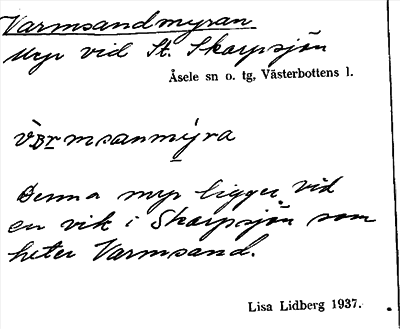 Varmsandmyran
Myr vid St. Skarpsjön
Åsele sn o. tg, Västerbottens l.
Denna myr ligger vid
en vik i Skarpsjön som
heter Varmsand.
Lisa Lidberg 1937.